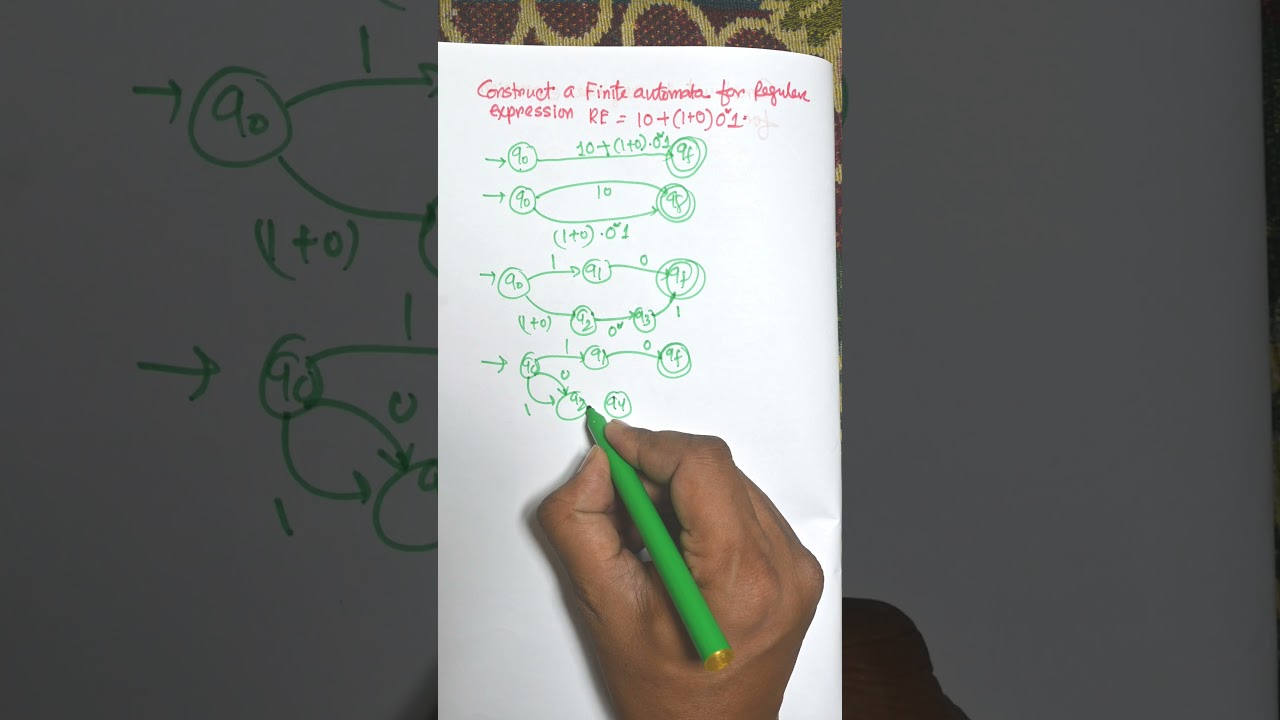 Construct a Finite automata for Regular
expression RE = 10+(1+0)0*1.
10+(1+0).0*1
→ q0 qf
→ q0 10 qf
(1+0).0*1
1 0
→ q0 q1 qf
(1+0) q2 0* q3 1
1 0
→ q0 q1 qf
0
1 q2 q4